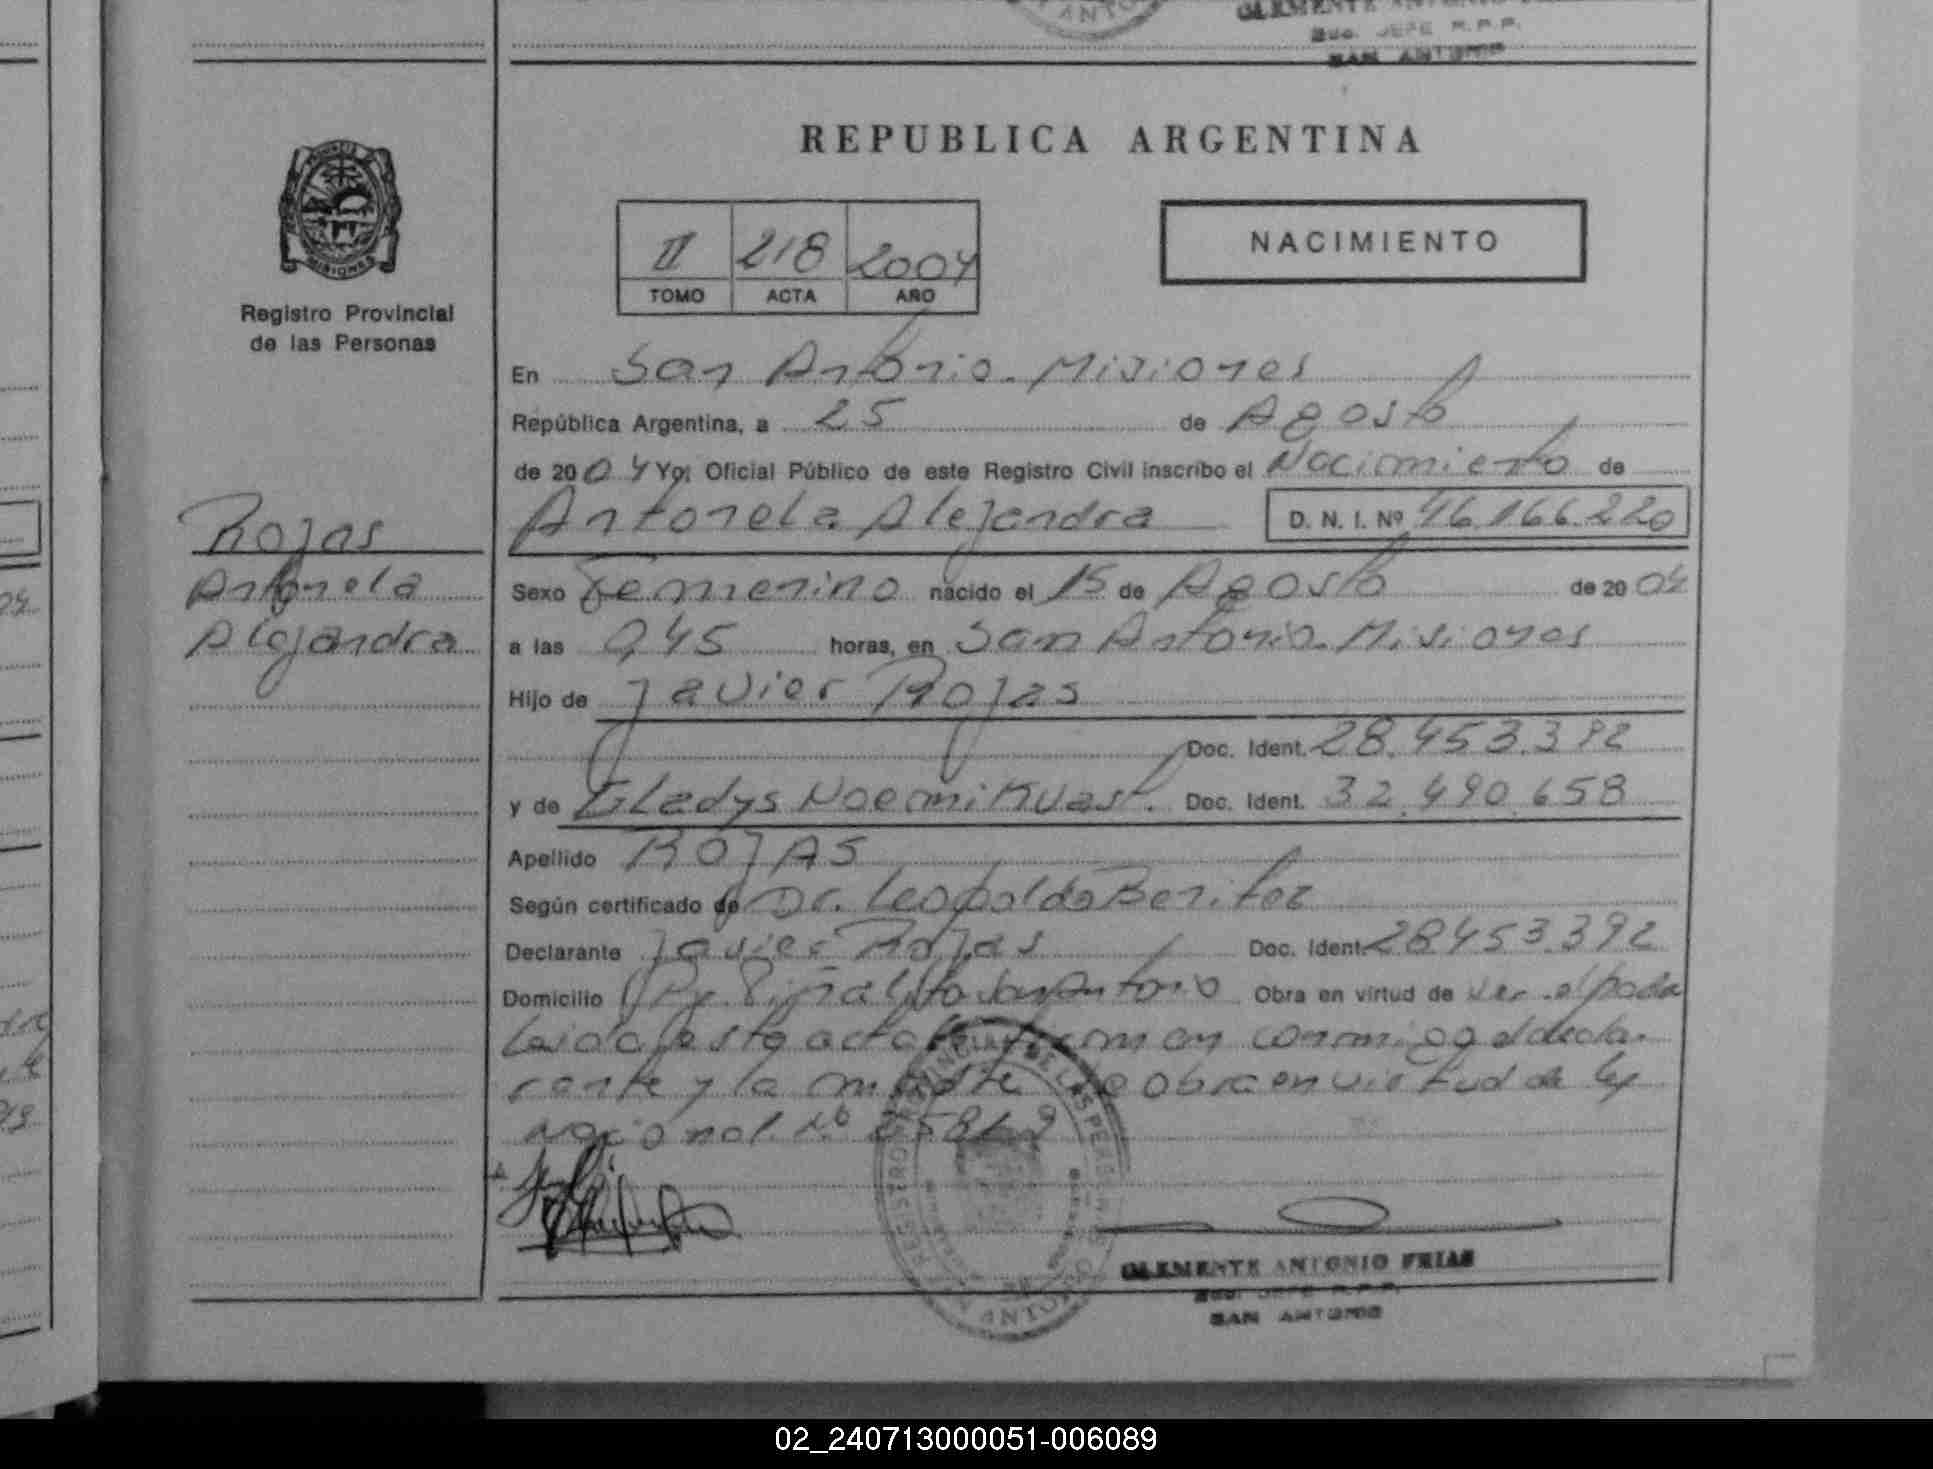 CLEMENTE ANTONIO
JEFE R.P.P.
SAN ANTONIO
REPUBLICA ARGENTINA
PROVINCIA DE
MISIONES
II 218 2004
TOMO ACTA AÑO
NACIMIENTO
Registro Provincial
de las Personas
En San Antonio - Misiones
República Argentina, a 25 de Agosto
de 2004 Yo, Oficial Público de este Registro Civil inscribo el Nacimiento de
Rojas
Antonela
Alejandra
Antonela Alejandra D. N. I. Nº 46.166.220
Sexo Femenino nacido el 15 de Agosto de 2004
a las 0,45 horas, en San Antonio - Misiones
Hijo de Javier Rojas
Doc. Ident. 28.453.392
y de Gladys Noemi Doc. Ident. 32.490.658
Apellido ROJAS
Según certificado de Dr. Leopoldo Benitez
Declarante Javier Rojas Doc. Ident. 28453.392
Domicilio San Antonio Obra en virtud de
Leida esta acta la firman conmigo el decla-
rante y la madre obra en virtud de ley
nacional Nº
CLEMENTE ANTONIO FRIAS
JEFE R.P.P.
SAN ANTONIO
02_240713000051-006089